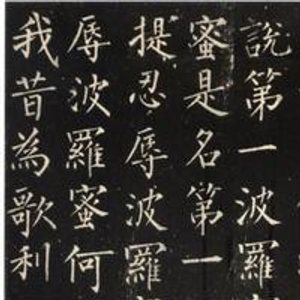 說第一波羅
蜜是名第一
提忍辱波羅
辱波羅蜜何
我昔為歌利